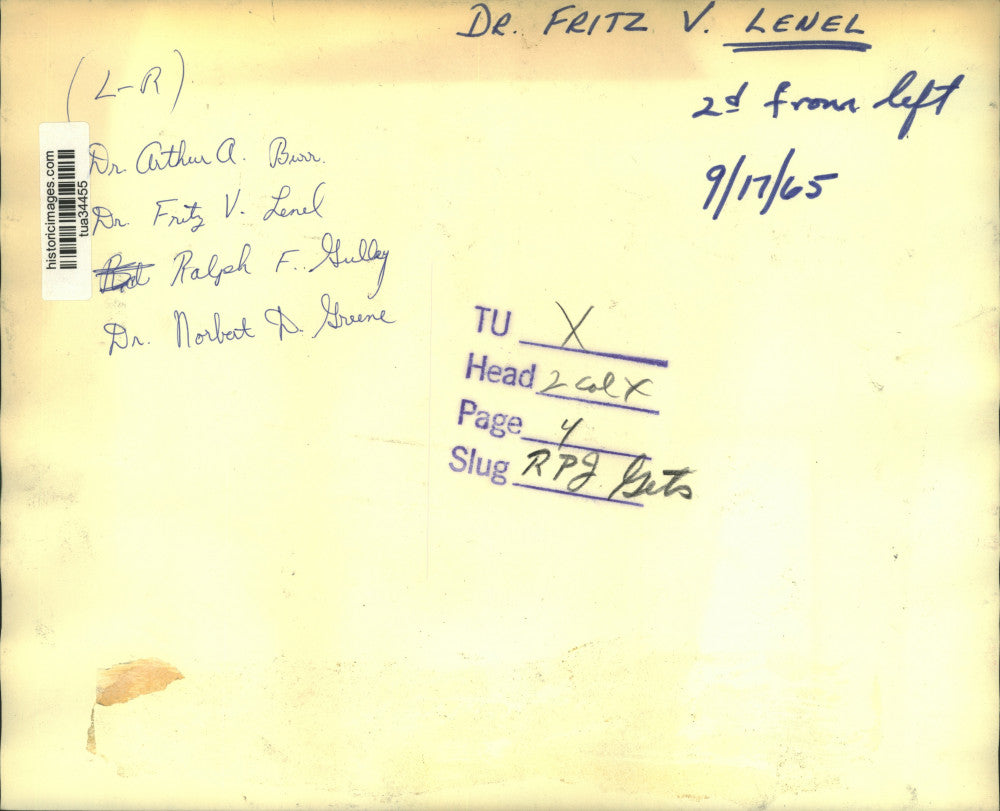 DR. FRITZ V. LENEL
2d from left
9/17/65
(L-R)
Dr. Arthur A. Burr.
Dr. Fritz V. Lenel
Ralph F. Gulley
Dr. Norbert D. Greene
historicimages.com
tua34455
TU X
Head 2 col X
Page 4
Slug RPJ Gets